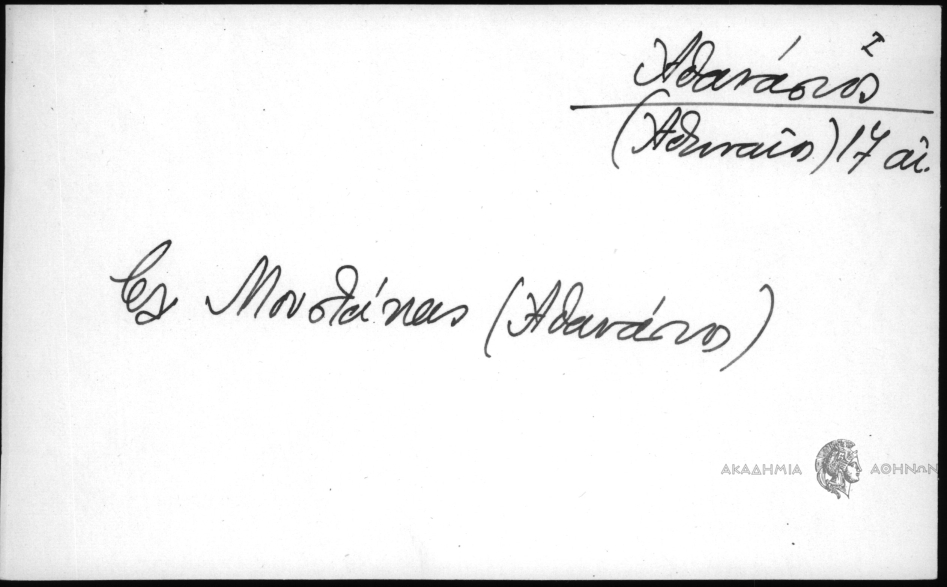 Ἀθανάσιος I
(Ἀθηναῖος) 17 αἰ.
Μουστάκας (Ἀθανάσιος)
ΑΚΑΔΗΜΙΑ ΑΘΗΝΩΝ